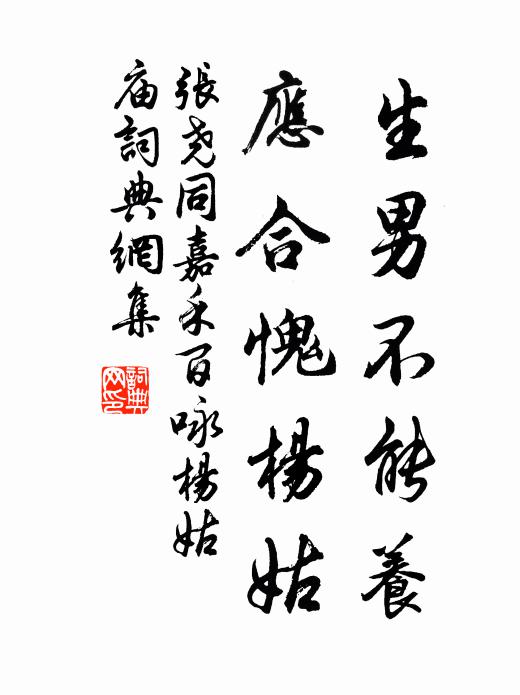 生男不能養
應合愧楊姑
張尧同嘉禾百咏楊姑
庙詞典網集
詞典
网印